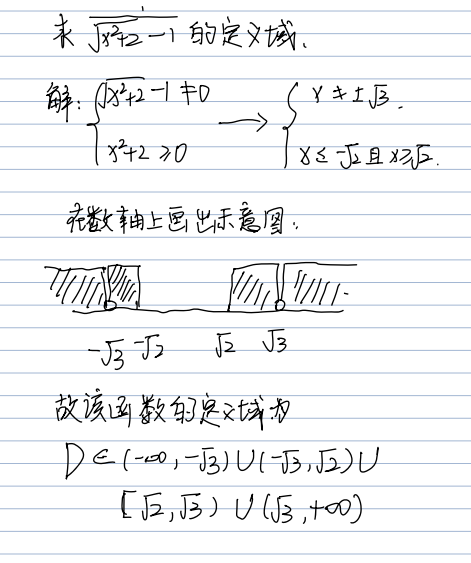 求 1/(√(x²+2) -1) 的定义域.
解: { √(x²+2) -1 ≠ 0 → { x ≠ ±√3.
x²+2 ≥ 0 x ≤ -√2 且 x ≥ √2.
在数轴上画出示意图:
-√3 -√2 √2 √3
故该函数的定义域为
D ∈ (-∞, -√3) ∪ (-√3, √2) ∪
[√2, √3) ∪ (√3, +∞)